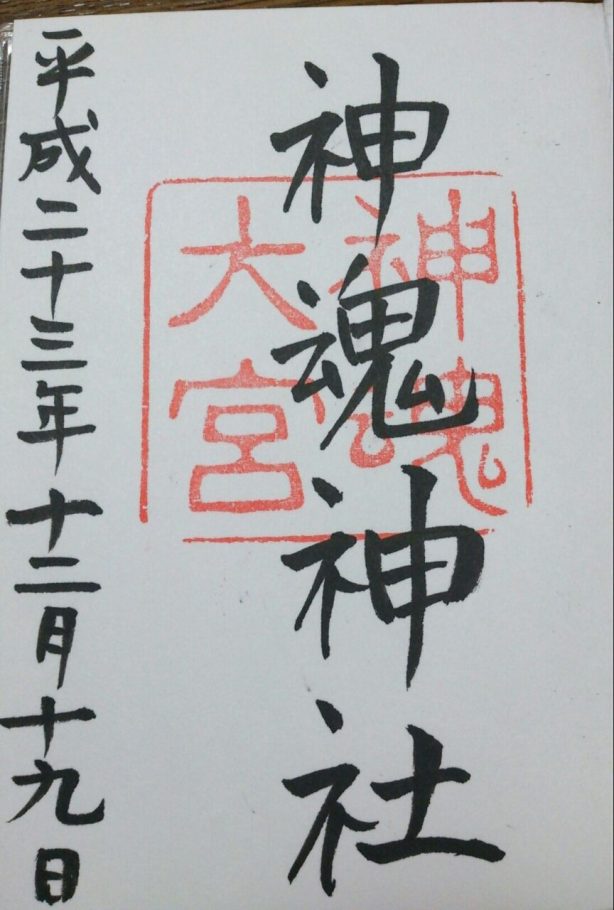 神魂神社
神魂
大宮
平成二十三年十二月十九日